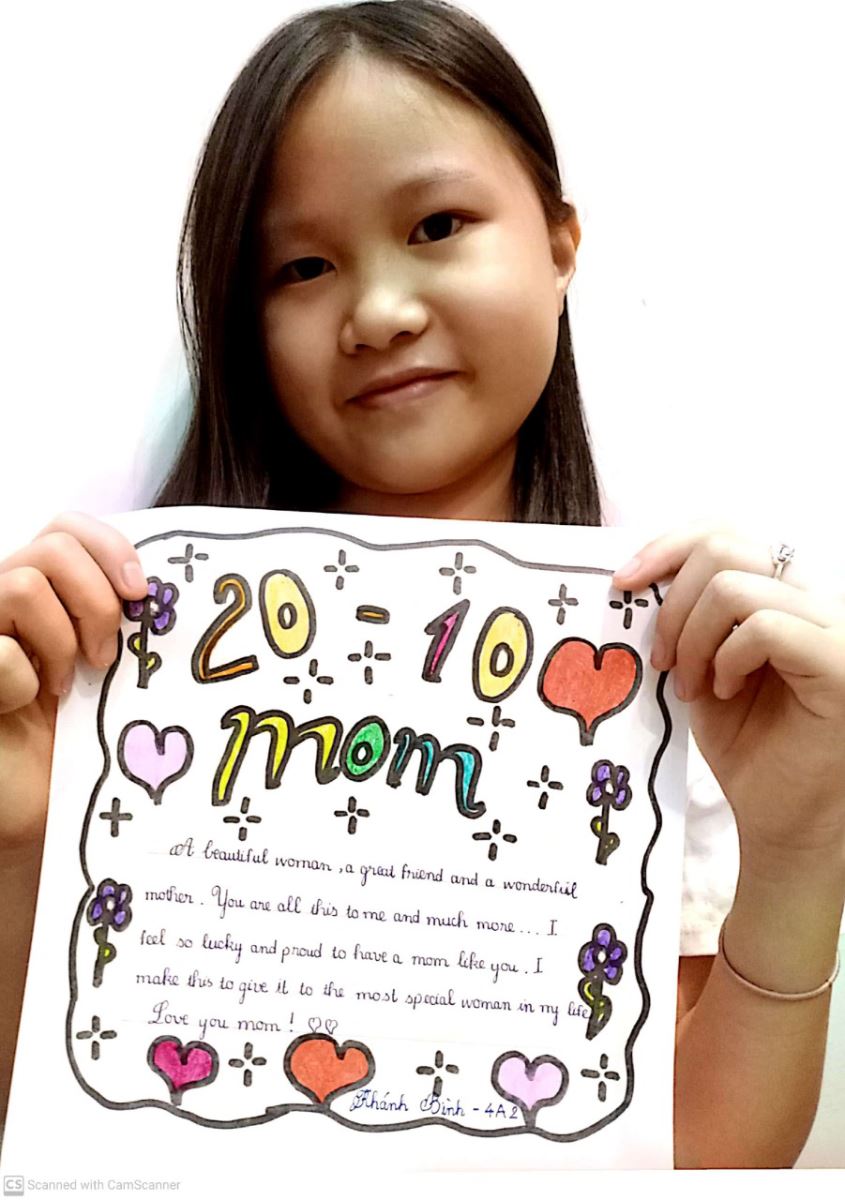 20 - 10
mom
A beautiful woman, a great friend and a wonderful
mother. You are all this to me and much more... I
feel so lucky and proud to have a mom like you. I
make this to give it to the most special woman in my life
Love you mom! ♡♡
Khánh Bình - 4A2
CS Scanned with CamScanner